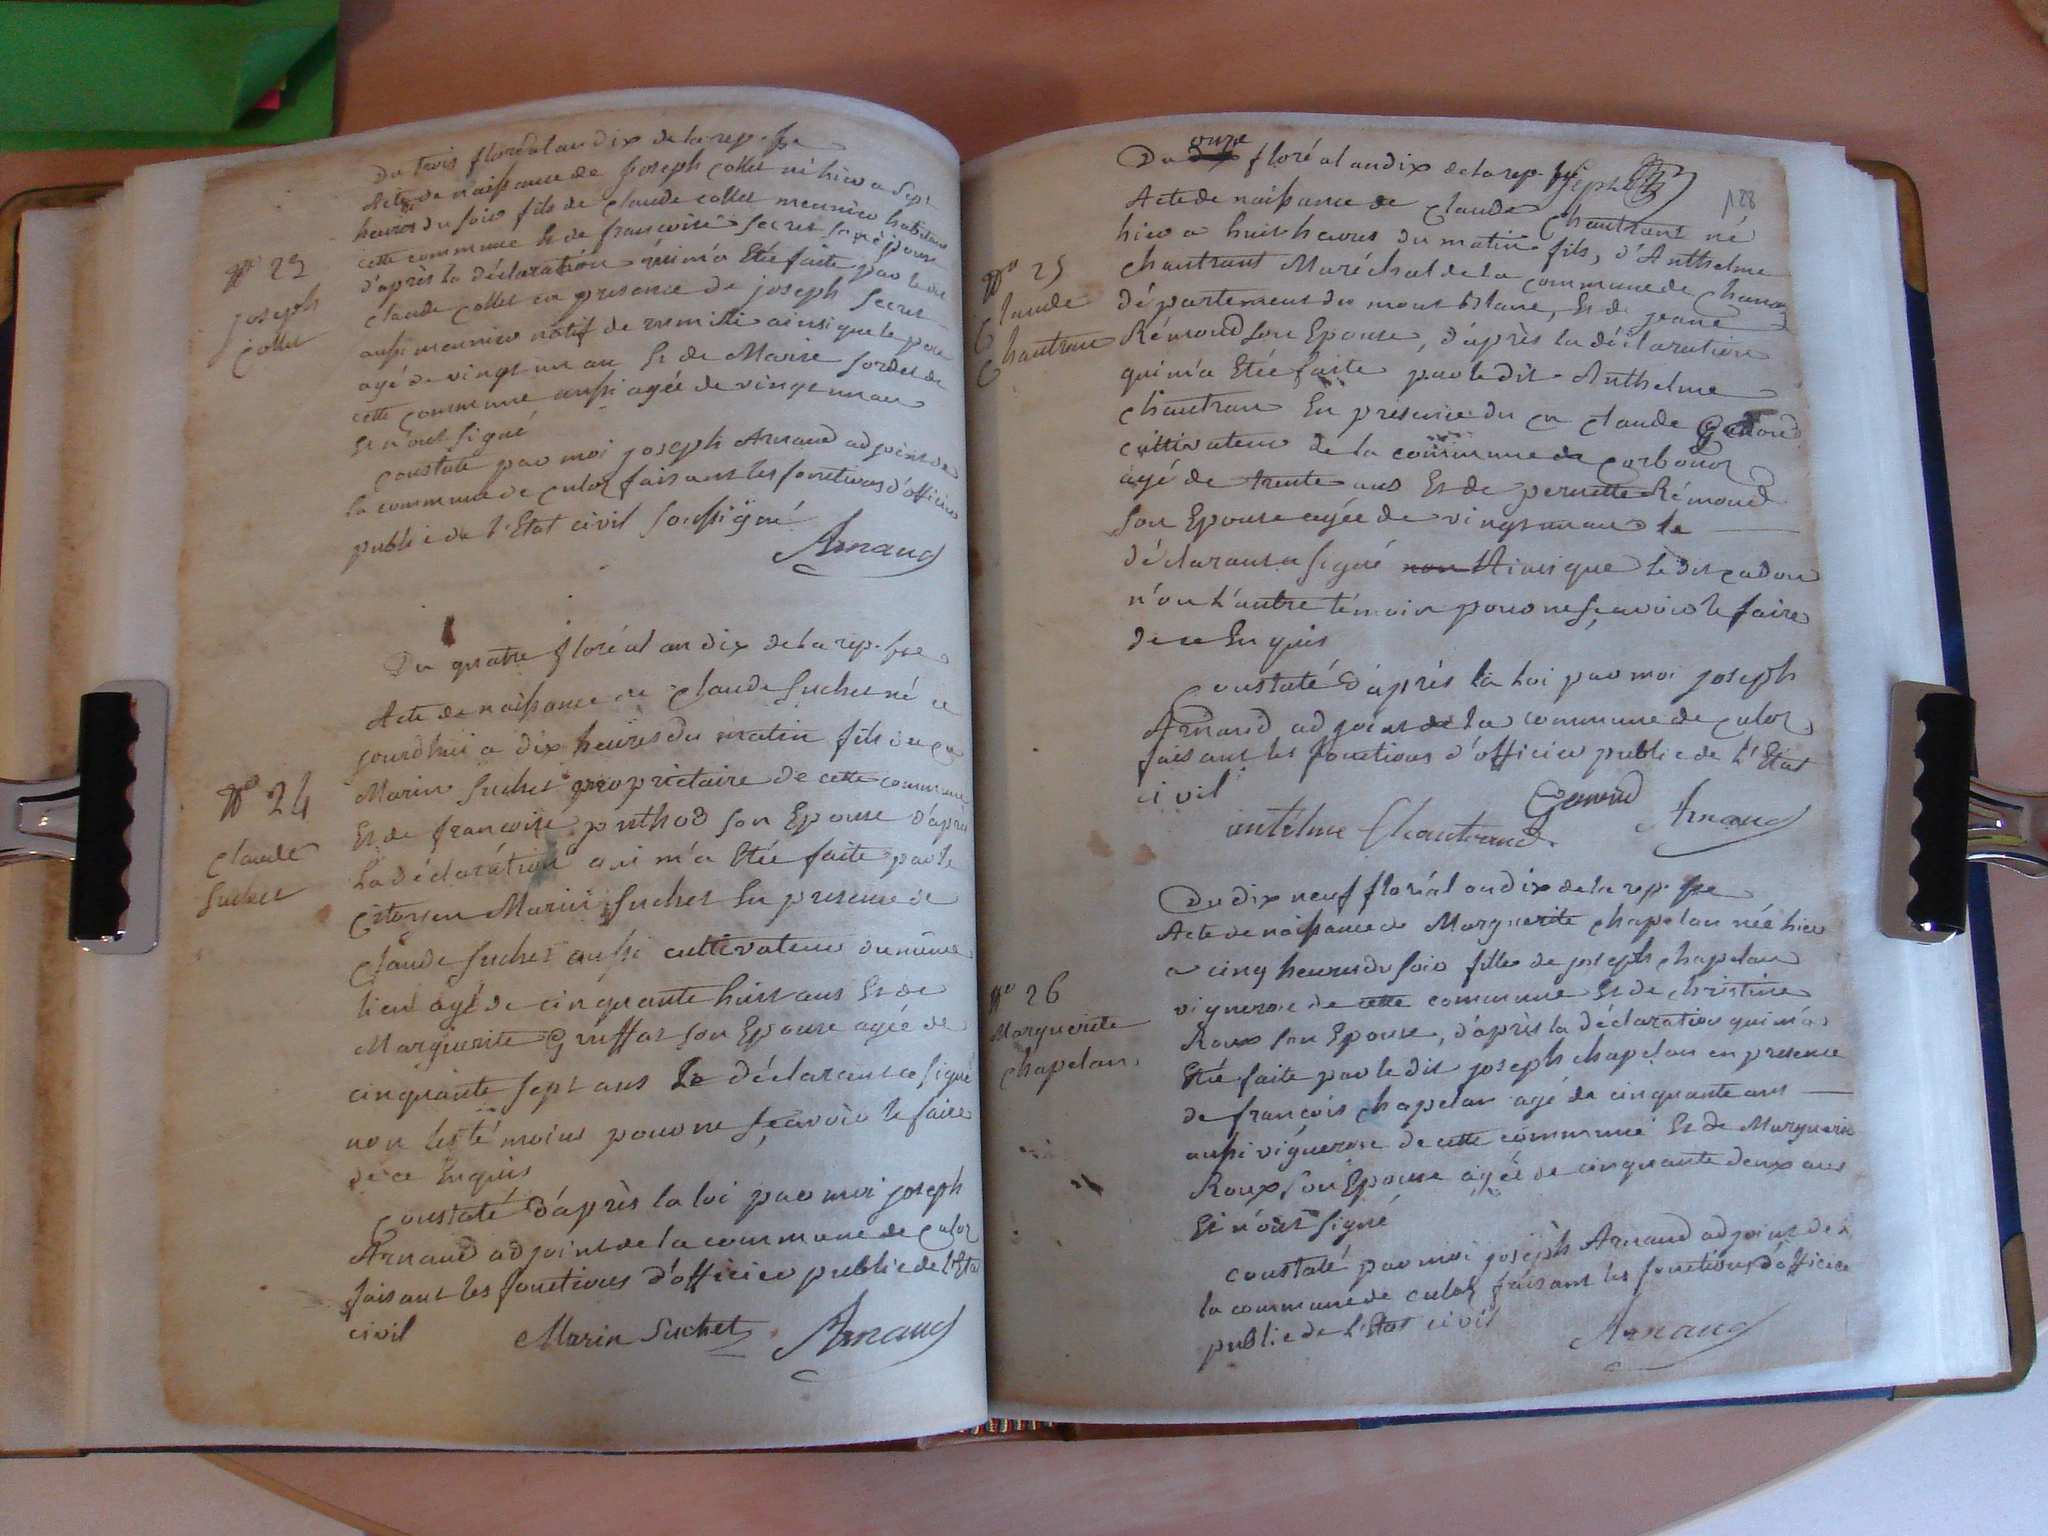 Du trois floréal an dix de la rep. fse
Acte de naissance de joseph collet né hier a sept
heures du soir fils de claude collet meunier habitant
cette commune Et de francoise secret son épouse
d'après la déclaration qui m'a Etée faite par le dit
claude collet en presence de joseph secret
aussi meunier natif de rumilli ainsi que le pere
agé de vingt un an Et de Marie sordet de
cette commune aussi agée de vingt un an
Et n'ont signé
Constaté par moi joseph Arnaud adjoint de
la commune de culoz faisant les fonctions d'officier
public de l'Etat civil soussigné
Arnaud
N° 23
joseph
collet
Du quatre floréal an dix de la rep. fse
Acte de naissance de Claude Suchet né ce
jourdhui a dix heures du matin fils du cn
Marin Suchet propriétaire de cette commune
Et de francoise puthod son Epouse d'après
La déclaration qui m'a Etée faite par le
Citoyen Marin Suchet En presence de
Claude Suchet aussi cultivateur du même
lieu agé de cinquante huit ans Et de
Marguerite Gruffat son Epouse agée de
cinquante sept ans Le déclarant a signé
non les témoins pour ne sçavoir le faire
de ce Enquis
Constaté d'après la loi par moi joseph
Arnaud adjoint de la commune de Culoz
faisant les fonctions d'officier public de l'Etat
civil
Marin Suchet Arnaud
N° 24
Claude
Suchet
188
Du onze floréal an dix de la rep.
Acte de naissance de Claude Chautrant né
hier a huit heures du matin fils, d'Anthelme
Chautrant Maréchal de la commune de Chanaz
département du mont blanc, Et de jeane
Rémond son Epouse, d'après la déclaration
qui m'a Etée faite par le dit Anthelme
Chautran En présence du cn claude
cultivateur de la commune de Corbonoz
agé de trente ans Et de pernette Rémond
son Epouse agée de vingt un an le
déclarant a signé non Ainsi que le dit cadou
n'on L'autre témoin pour ne sçavoir le faire
de ce Enquis
Constaté d'après la Loi par moi joseph
Arnaud adjoint de la commune de culoz
faisant les fonctions d'officier public de l'Etat
civil
antelme Chautrand Arnaud
N° 25
Claude
Chautran
Du dix neuf floréal an dix de la rep. fse
Acte de naissance de Marguerite chapelan née hier
a cinq heures du soir fille de joseph chapelan
vigneron de cette commune Et de christine
Roux son Epouse, d'après la déclaration qui m'a
Etée faite par le dit joseph chapelan en presence
de françois chapelan agé de cinquante ans
aussi vigneron de cette commune Et de Marguerite
Roux son Epouse agée de cinquante deux ans
Et n'ont signé
Constaté par moi joseph Arnaud adjoint de
la commune de culoz faisant les fonctions d'officier
public de l'Etat civil
Arnaud
N° 26
Marguerite
chapelan.